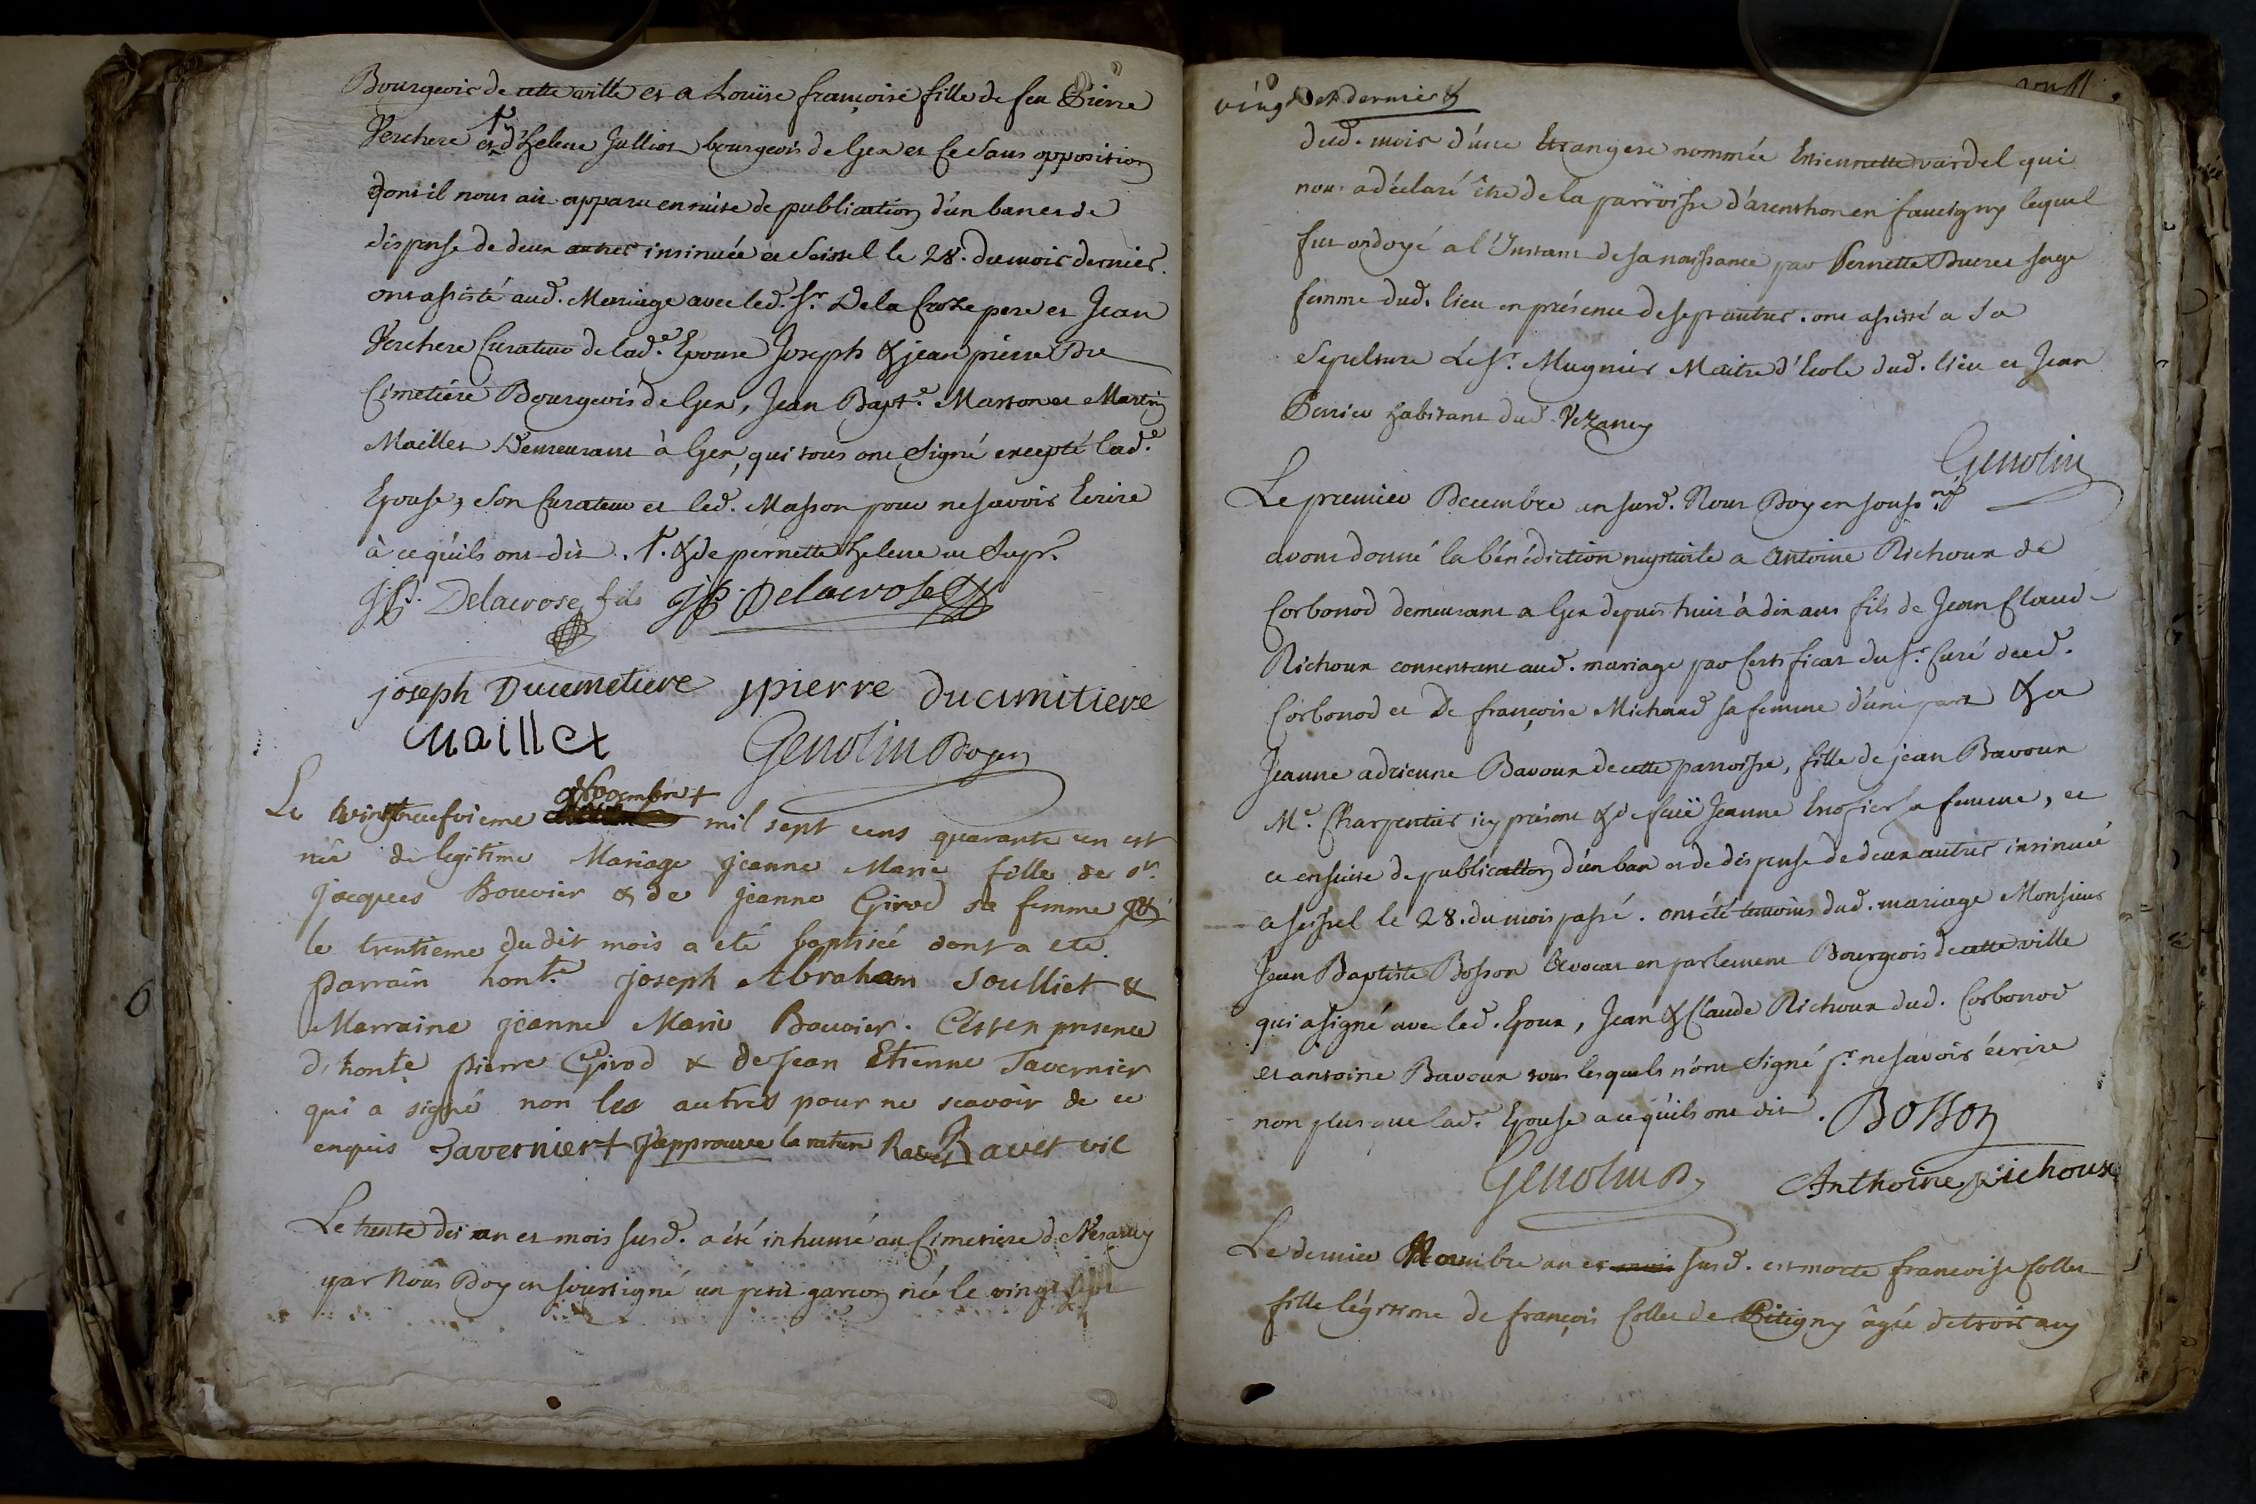 Bourgeois de cette ville et a Louïse françoise fille de feu Pierre
Perchere et d'helene Julliot bourgeois de Gex et ce sans opposition
dont il nous ait apparu ensuite de publication d'un ban et de
dispense de deux autres insinuée a Seissel le 28. du mois dernier.
ont assisté aud. Mariage avec led. Sr. Delacroze pere et Jean
Perchere Curateur de lad.e Epouse Joseph & jean pierre Du
Cimetiére Bourgeois de Gex, Jean Bapt.e Masson et Martin
Maillet Demeurant à Gex, qui tous ont signé excepté lad.e
Epouse, son Curateur et led. Masson pour ne savoir Ecrire
à ce qu'ils ont dit. & de pernette helene
Delacrose fils Delacrose
joseph Ducimetiere jpierre ducimitiere
Maillet Genolin Doyen
Novembre +
Le vingtneufvieme mil sept cens quarante un est
née de legitime Mariage jeanne Marie fille de sr.
jacques Bouvier & de jeanne Girod sa femme &
le trentieme du dit mois a eté baptisée dont a ete
parrain hont.e joseph Abraham Soulliet &
Marraine jeanne Marie Bouvier. C'est en presence
d'honte pierre Girod & de jean Etienne Tavernier
qui a signé non les autres pour ne scavoir de ce
enquis Tavernier + japprouve la rature Ravet vic
Le trente des an et mois susd. a été inhumé au Cimetiere de Vesancy
par Nous Doyen soussigné un petit garcon née le vingt sept
vingt dernier &
dud. mois d'une Etrangere nommée Etiennette vardel qui
nous a déclaré être de la parroisse d'arenthon en faucigny lequel
fut ondoyé a l'Instant de sa naissance par Pernette Ducret sage
femme dud. lieu en présence de sept autres. ont assisté a sa
Sepulture Le Sr. Mugnier Maitre d'Ecole dud. lieu et Jean
Perrier habitant dud. Vezancy
Genolin
Le premier Decembre an susd. Nous Doyen souss.né
avons donné la bénédiction nuptiale a Antoine Richoux de
Corbonod demeurant a Gex depuis huit à dix ans fils de Jean Claude
Richoux consentant aud. mariage par Certificat du Sr. Curé dud.
Corbonod et De françoise Michaud sa femme d'une part & a
Jeanne adrienne Bavoux de cette parroisse, fille de jean Bavoux
M.e Charpentier icy présent & de Jeanne sa femme, et
ce ensuite de publication d'un ban et de dispense de deux autres insinuée
a seissel le 28. du mois passé. ont été temoins dud. mariage Monsieur
Jean Baptiste Bosson Avocat en parlement Bourgeois de cette ville
qui a signé avec led. Epoux, Jean & Claude Richoux dud. Corbonod
et antoine Bavoux tous lesquels n'ont signé pr. ne savoir écrire
non plus que lad.e Epouse a ce qu'ils ont dit. Bosson
Genolin D. Anthoine Richoux
Le dernier Novembre an et susd. est morte francoise Collet
fille légitime de françois Collet de Pitigny âgée de trois ans